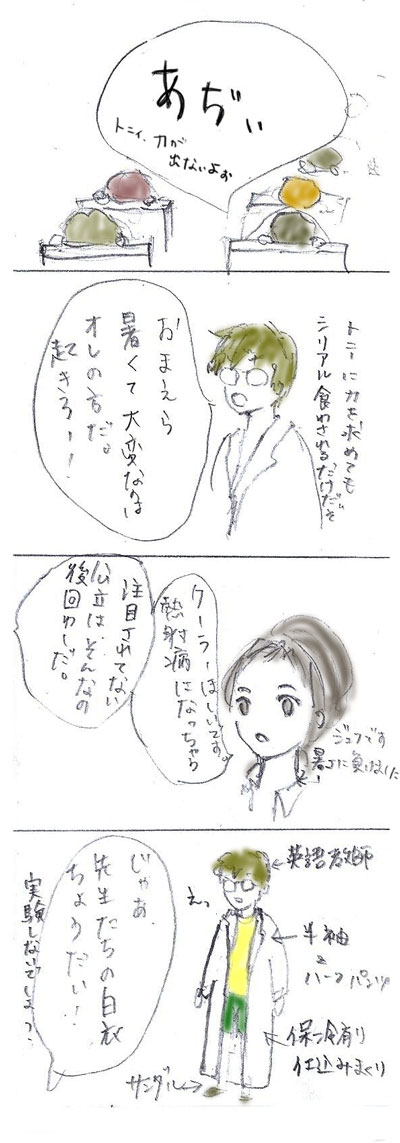 あぢぃ
トニィ、力が
出ないよぉ
トニーに力を求めても
シリアル食わされるだけだぞ
おまえら
暑くて大変なのは
オレの方だ。
起きろー!
クーラーほしいです。
熱射病になっちゃう
注目されてない
公立は、そんなの
後回しだ。
ジュンです
暑さに負けました
じゃあ
先生たちの白衣
ちょうだい!
実験しないでしょう?
えっ
←英語教師
←半袖
&
ハーフパンツ
←保冷有り
仕込みまくり
サンダル→